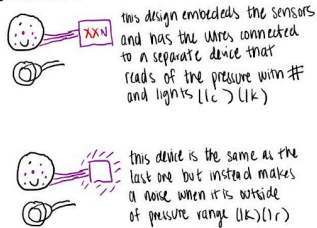 this design embededs the sensors
XXN
and has the wires connected
to a separate device that
reads of the pressure with #
and lights (1c) (1k)
this device is the same as the
last one but instead makes
a noise when it is outside
of pressure range (1k) (1r)